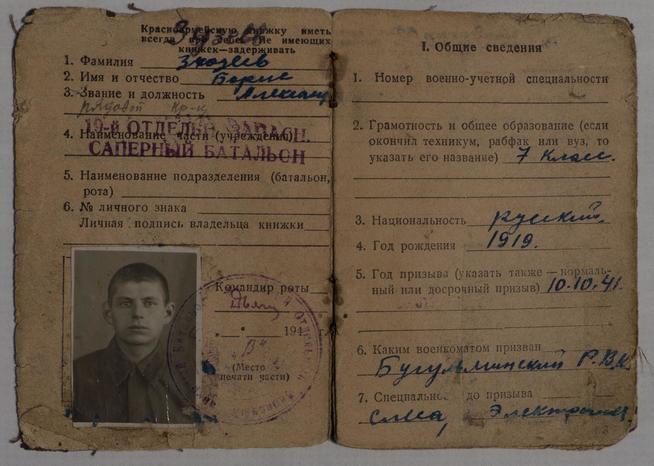 Красноармейскую книжку иметь
всегда при себе. Не имеющих
книжек—задерживать
1. Фамилия
2. Имя и отчество Борис
3. Звание и должность Александ
рядовой кр-ц
19-й ОТДЕЛЬН. ЗАПАСН.
4. Наименование части (учреждения)
САПЕРНЫЙ БАТАЛЬОН
5. Наименование подразделения (батальон,
рота)
6. № личного знака
Личная подпись владельца книжки
Командир роты
194
(Место
печати части)
I. Общие сведения
1. Номер военно-учетной специальности
2. Грамотность и общее образование (если
окончил техникум, рабфак или вуз, то
указать его название) 7 класс.
3. Национальность русский
4. Год рождения 1919.
5. Год призыва (указать также — нормаль-
ный или досрочный призыв) 10.10.41.
6. Каким военкоматом призван
Бугульминский Р.В.К.
7. Специальность до призыва